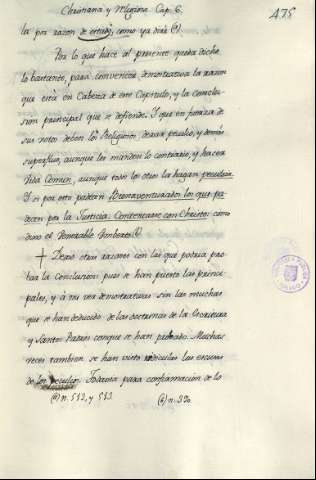 Christiana y Religiosa Cap. 6.
475
la por razon de estado, como ya dixe (a)
Por lo que hace al presente queda dicho
lo bastante, para convencer demostrativa la razon
que està en Cabeza de este Capitulo, y la conclu-
sion principal que se defiende. Y que en fuerza de
sus votos deben los Religiosos, dexar peculio, y demàs
superfluo, aunque les manden lo contrario, y hacer
Vida Comun, aunque todos los otros la hagan peculiar.
Y si por esto padecen Bienaventurados los que pa-
decen por la Justicia. Contentarse con Christo: como
dixo el Venerable (b)
Dexo otras razones con las que podria pro-
bar la Conclusion: pues se han puesto las princi-
pales, y à mi ver demostrativas: sin las muchas
que se han deducido de las doctrinas de la Escritura
y Santos Padres conque se han probado. Muchas
veces tambien se han visto ridiculas las escusas
de los. Todavia para confirmacion de lo
(a) n. 512, y 513 (b) n. 390